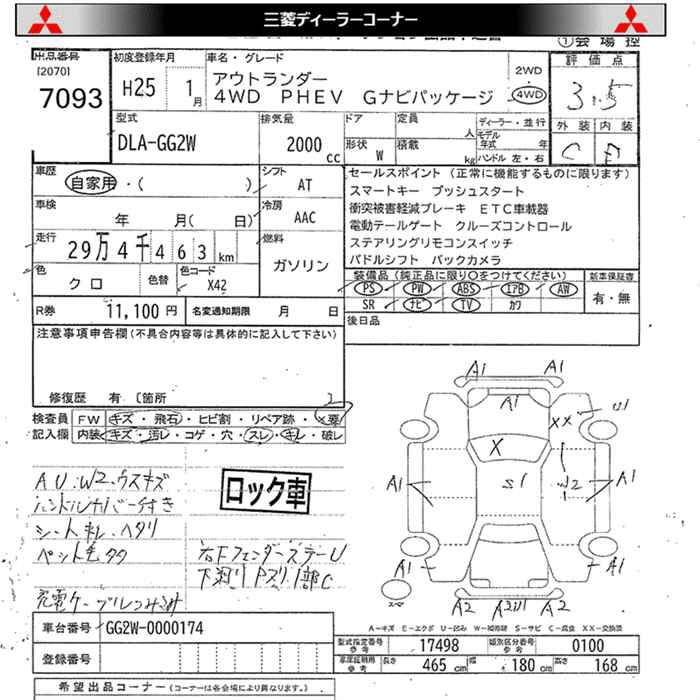 三菱ディーラーコーナー
①会場控
出品番号 初度登録年月 車名・グレード 評価点
[2070]
7093 H25 1月 アウトランダー 2WD
4WD PHEV Gナビパッケージ 4WD 3.5
外装 内装
型式 排気量 ドア 定員 人 ディーラー・並行
DLA-GG2W 2000cc 形状 W 積載 kg モデル年式 年 ハンドル 左・右 C
車歴 シフト セールスポイント (正常に機能するものに限ります)
自家用・( ) AT スマートキー プッシュスタート
車検 冷房 衝突被害軽減ブレーキ ETC車載器
年 月( 日) AAC 電動テールゲート クルーズコントロール
走行 燃料 ステアリングリモコンスイッチ
29万4千463km ガソリン パドルシフト バックカメラ
色 クロ 色替 色コード X42 装備品(純正品に限り○をつけてください) 新車保証書
PS PW ABS エアB AW 有・無
R券 11,100円 名変通知期限 月 日 SR ナビ TV カワ
注意事項申告欄(不具合内容等は具体的に記入して下さい) 後日品
修復歴 有 [箇所 ]
検査員 FW キズ・飛石・ヒビ割・リペア跡・×要
記入欄 内装 キズ・汚レ・コゲ・穴・スレ・キレ・破レ
A1 A1
A1 XX U1
X
A1 S1 W2 A1
A1 A1
A2 A2U1 A2
AU.W2.ウスキズ
ハンドルカバー付き
シートキレ.ヘタリ
ペット毛タタ
充電ケーブルつみ込み
ロック車
右下フェンダーズラーU
下廻りPスリ1部C
A−キズ E−エクボ U−凹み W−補修跡 S−サビ C−腐食 XX−交換済
車台番号 GG2W-0000174 型式指定番号参考 17498 類別区分番号参考 0100
登録番号 車庫証明用参考 長さ 465cm 幅 180cm 高さ 168cm
希望出品コーナー(コーナーは各会場により異なります。)